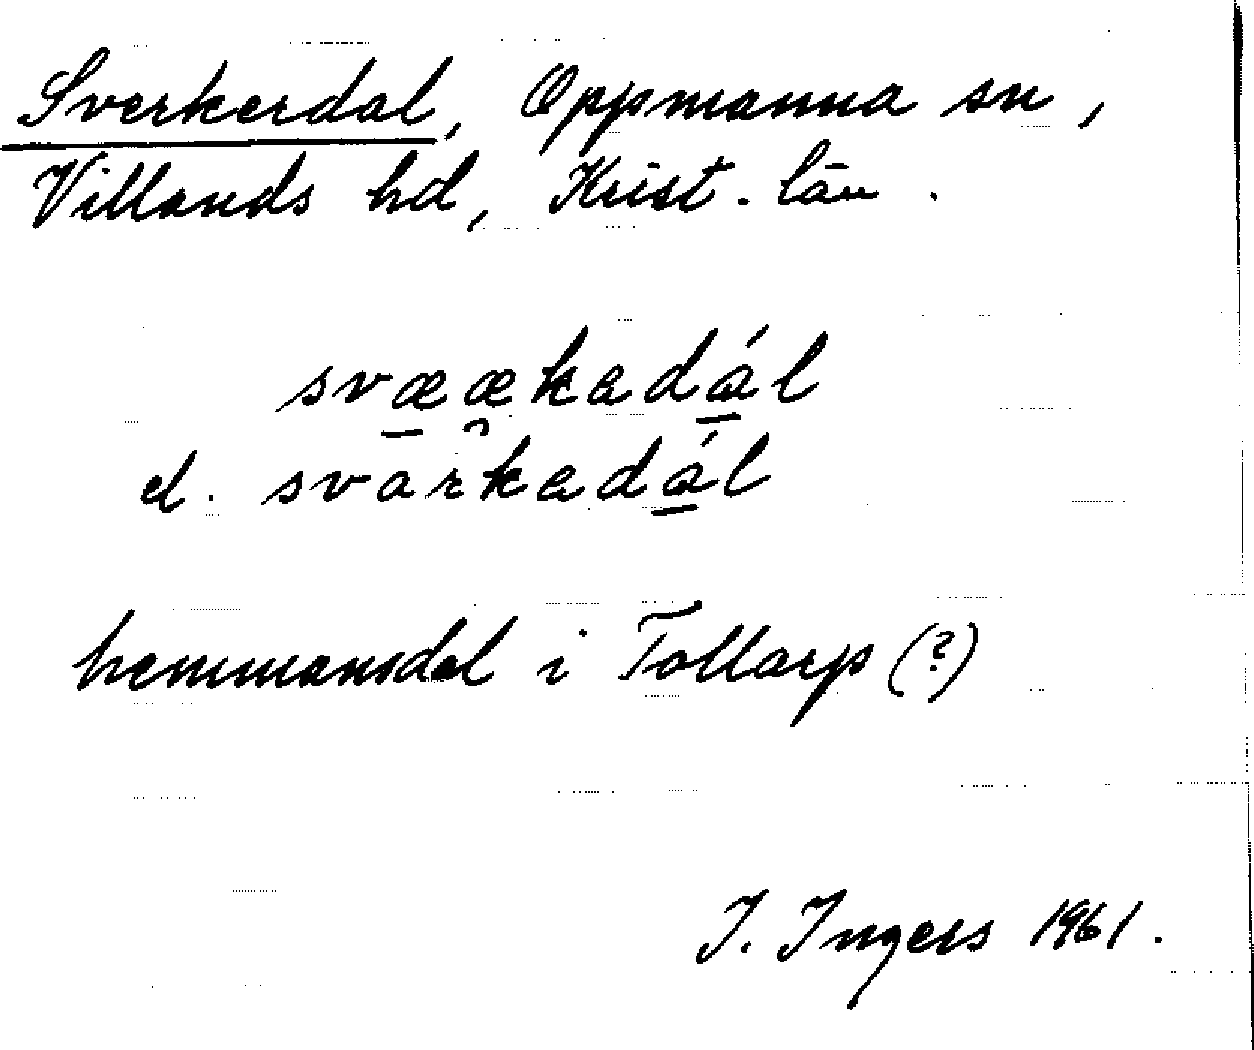 Sverkerdal, Oppmanna sn,
Villands hd, Krist. län.
sv<u>æ</u>æ̯kadá̱l
el. svarkadá̱l
hemmansdel i Tollarp (?)
I. Ingers 1961.